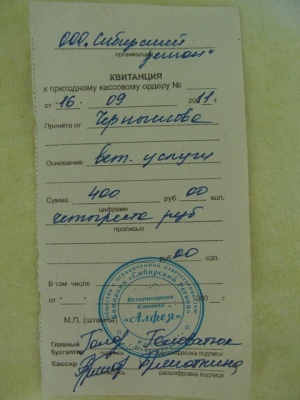 ООО "Сибирский
организация
КВИТАНЦИЯ
к приходному кассовому ордеру №
от 16. 09 2011 г.
Принято от
Основание: Вет. услуги
Сумма 400 руб. 00 коп.
цифрами
четыреста руб
прописью
руб. 00 коп.
В том числе
от
М.П. (штампа)
"Сибирский Регион"
Ветеринарная
Клиника
«Алфея»
Главный
бухгалтер
расшифровка подписи
Кассир
расшифровка подписи